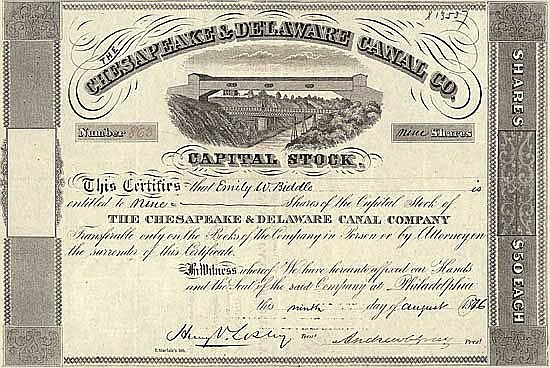 THE
CHESAPEAKE & DELAWARE CANAL CO.
Number 863
Nine Shares
CAPITAL STOCK.
This Certifies that Emily W. Biddle is
entitled to Nine Shares of the Capital Stock of
THE CHESAPEAKE & DELAWARE CANAL COMPANY
Transferable only on the Books of the Company in Person or by Attorney on
the surrender of this Certificate.
In Witness whereof We have hereunto affixed our Hands
and the Seal of the said Company at Philadelphia
this ninth day of august 1876
Henry V. Lesley Treasr.
Andrew C. Gray Prest.
SHARES
$50 EACH